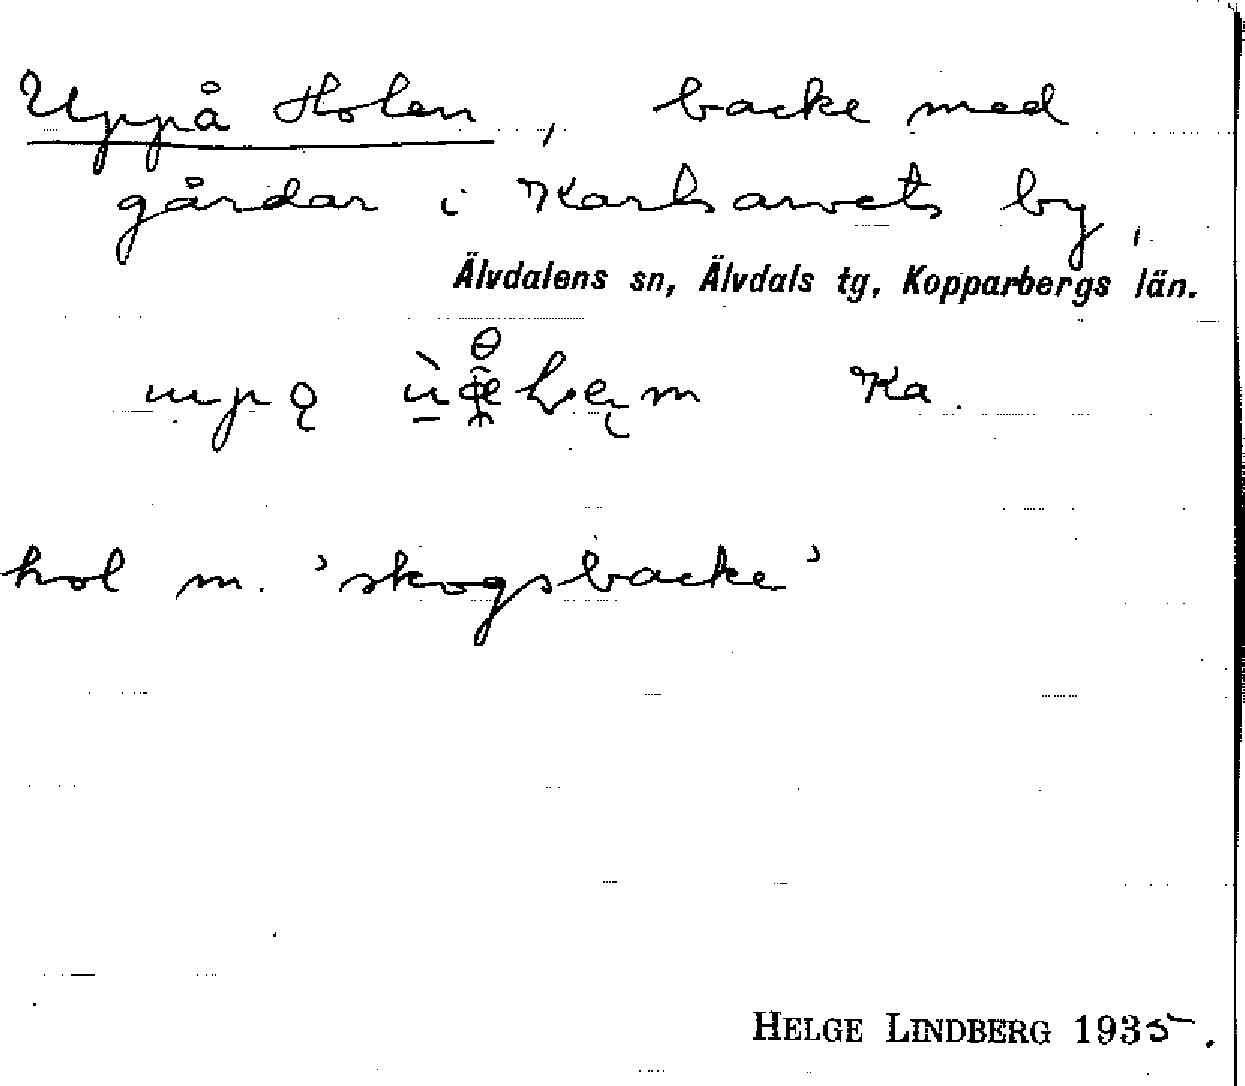 Uppå Holen, backe med
gårdar i Karlsarvets by,
Älvdalens sn, Älvdals tg, Kopparbergs län.
Ka.
hol m. 'skogsbacke'
HELGE LINDBERG 1935.